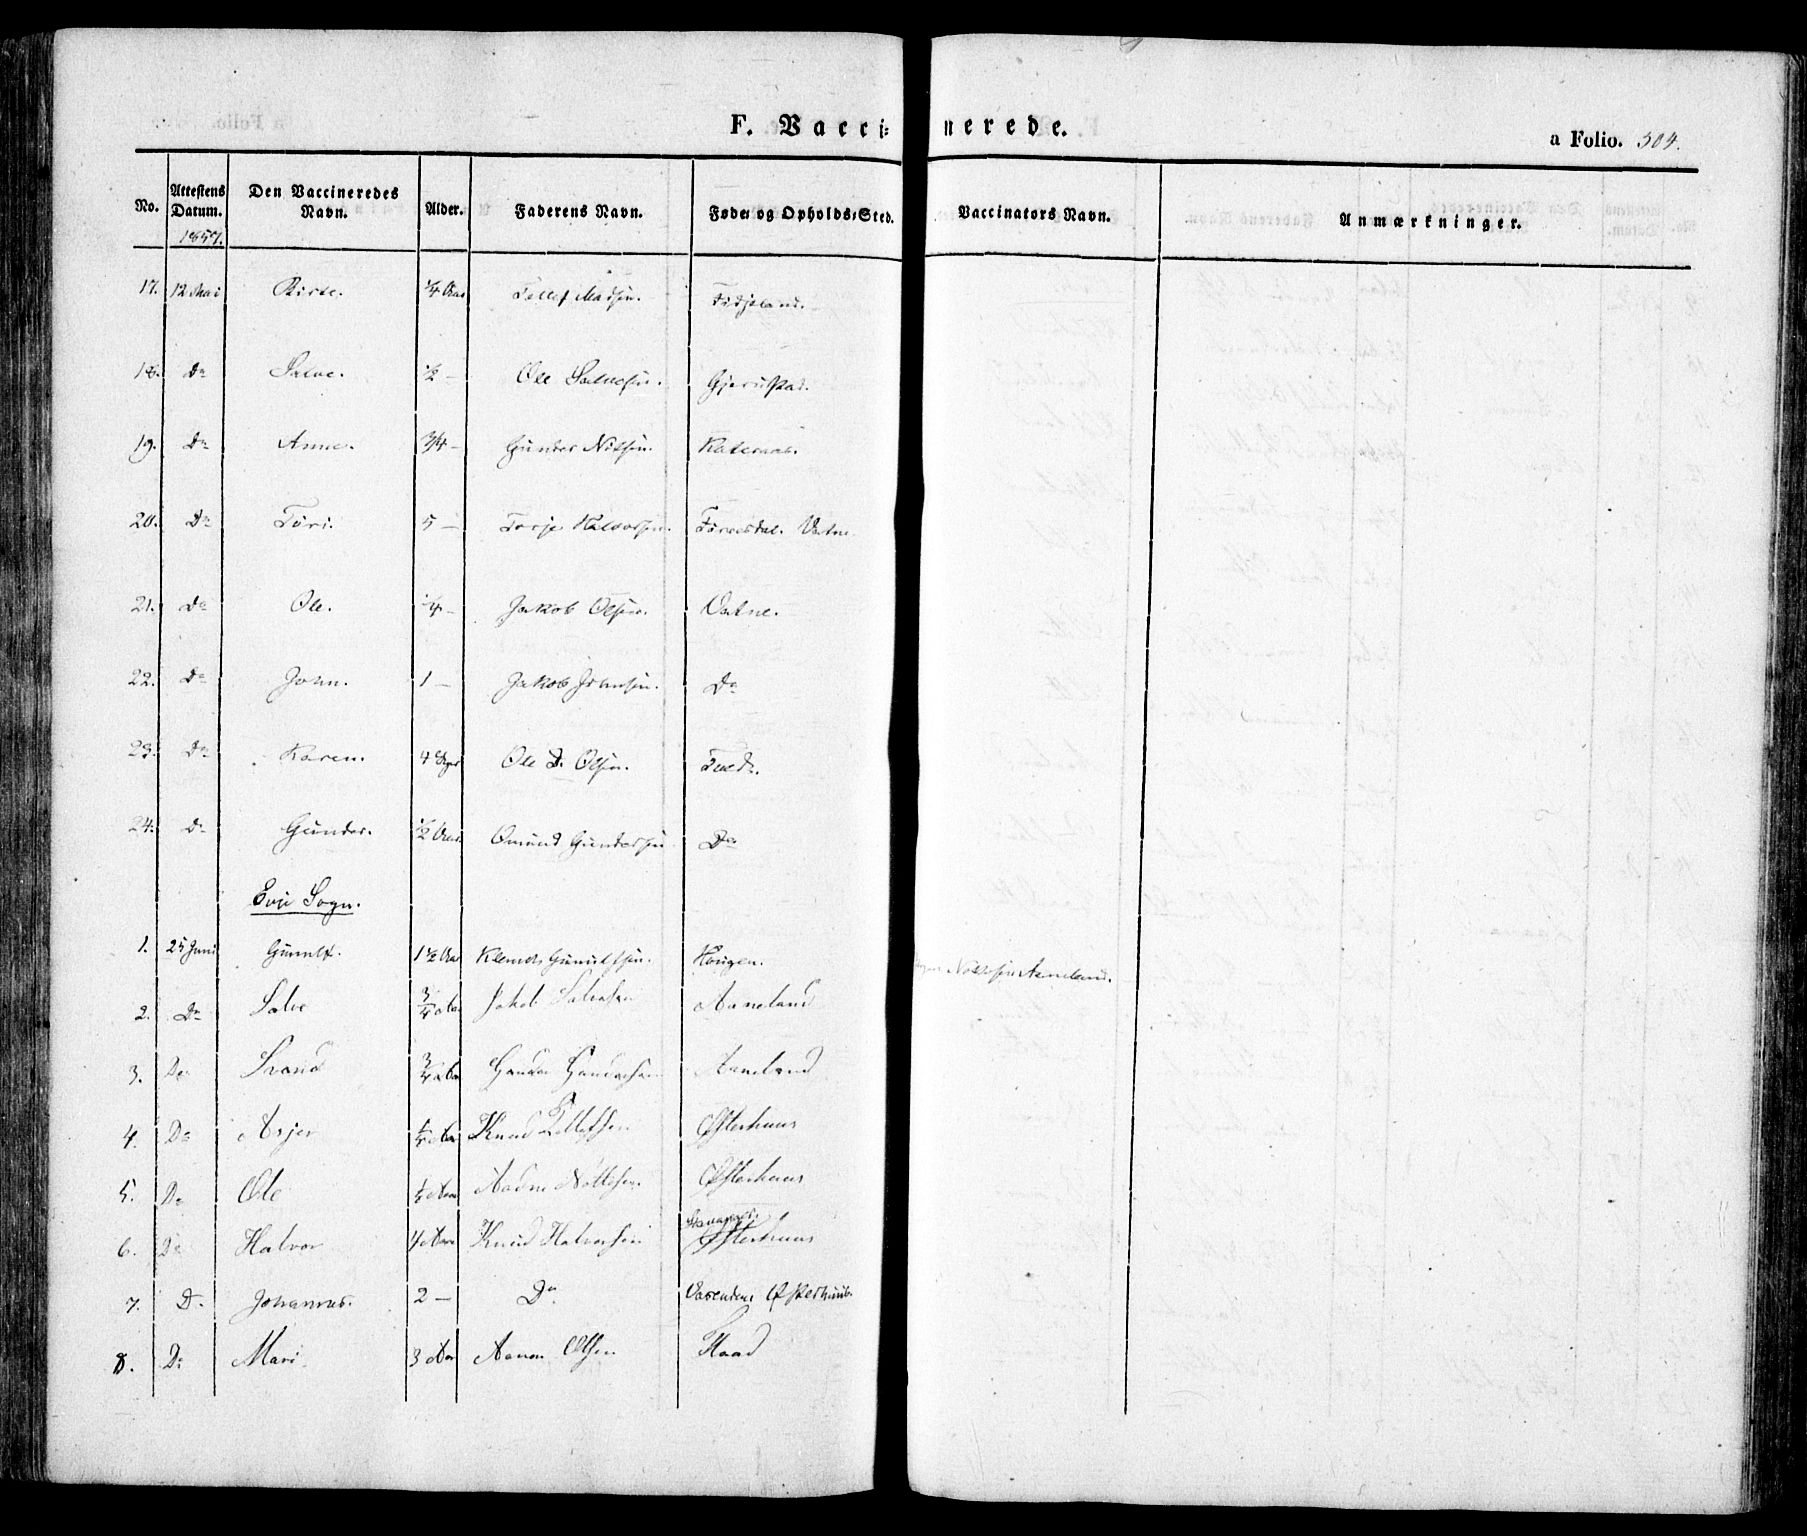 F. Vaccinerede.
a Folio. 304.
No. Attestens Datum. Den Vaccineredes Navn. Alder. Faderens Navn. Føde- og Opholds-Sted. Vaccinators Navn. Anmærkninger.
1857.
17. 12 Mai Birte. 1/4 Aar Tellef Madsen. Fidjeland.
18. Do Salve. 1/2 — Ole Salvesen. Gjerustad.
19. Do Anne. 3/4 — Gunder Nilsen. Kateraas.
20. Do Turi. 5 — Torje Halvorsen. Vatne
21. Do Ole. 1/4 — Jakob Olsen. Vatne.
22. Do John. 1 — Jakob Johnsen. Do
23. Do Karen. 4 Uger Ole D. Olsen. Tveds.
24. Do Gunder. 1/2 Aar. Omund Gundersen Do
Evje Sogn.
1. 25 Juni Gunult. 1 1/2 Aar Klemet Gunultsen. Hougen. Aaneland.
2. Do Salve 3/4 Aar Jakob Salvesen Aaneland
3. Do Svend 3/4 Aar Gunder Gundersen Aaneland
4. Do Asjer 1/4 Aar Knud Tellefsen Østerhuus
5. Do Ole 1/2 Aar Aadne Østerhuus
6. Do Halvor 4 Aar Knud Halvorsen Østerhuus
7. Do Johannes. 2 — Do Østerhuus
8. Do Mari 3 Aar Aanon Olsen Flaad